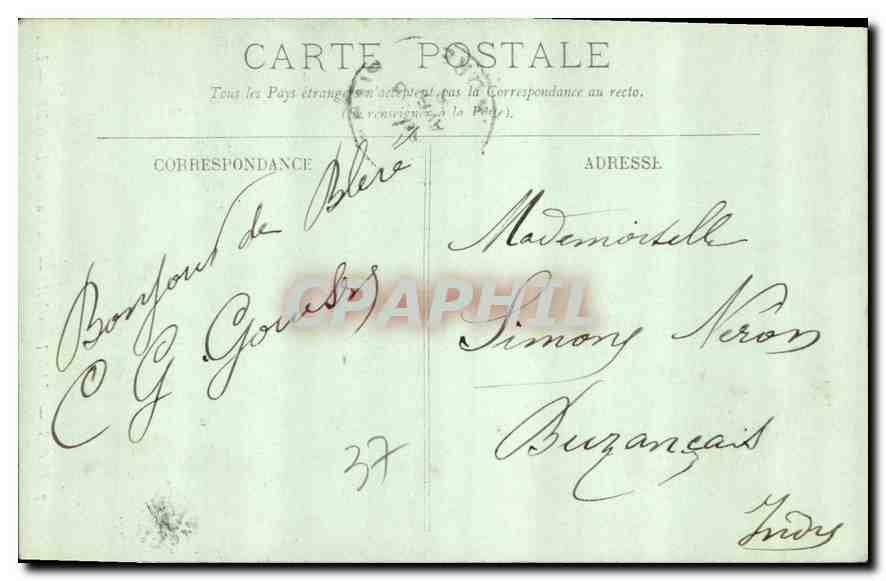 CARTE POSTALE
Tous les Pays étrangers n'acceptent pas la Correspondance au recto.
(Se renseigner à la Poste).
CORRESPONDANCE
ADRESSE
Bonjour de Bléré
C G
Mademoiselle
Simone Nerôn
Buzançais
Indre
37
CPAPHIL